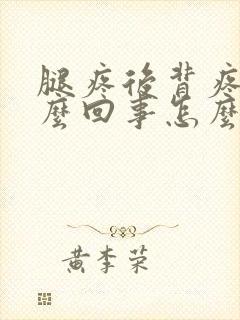 腿疼後背疼
麼回事怎麼
黄李荣